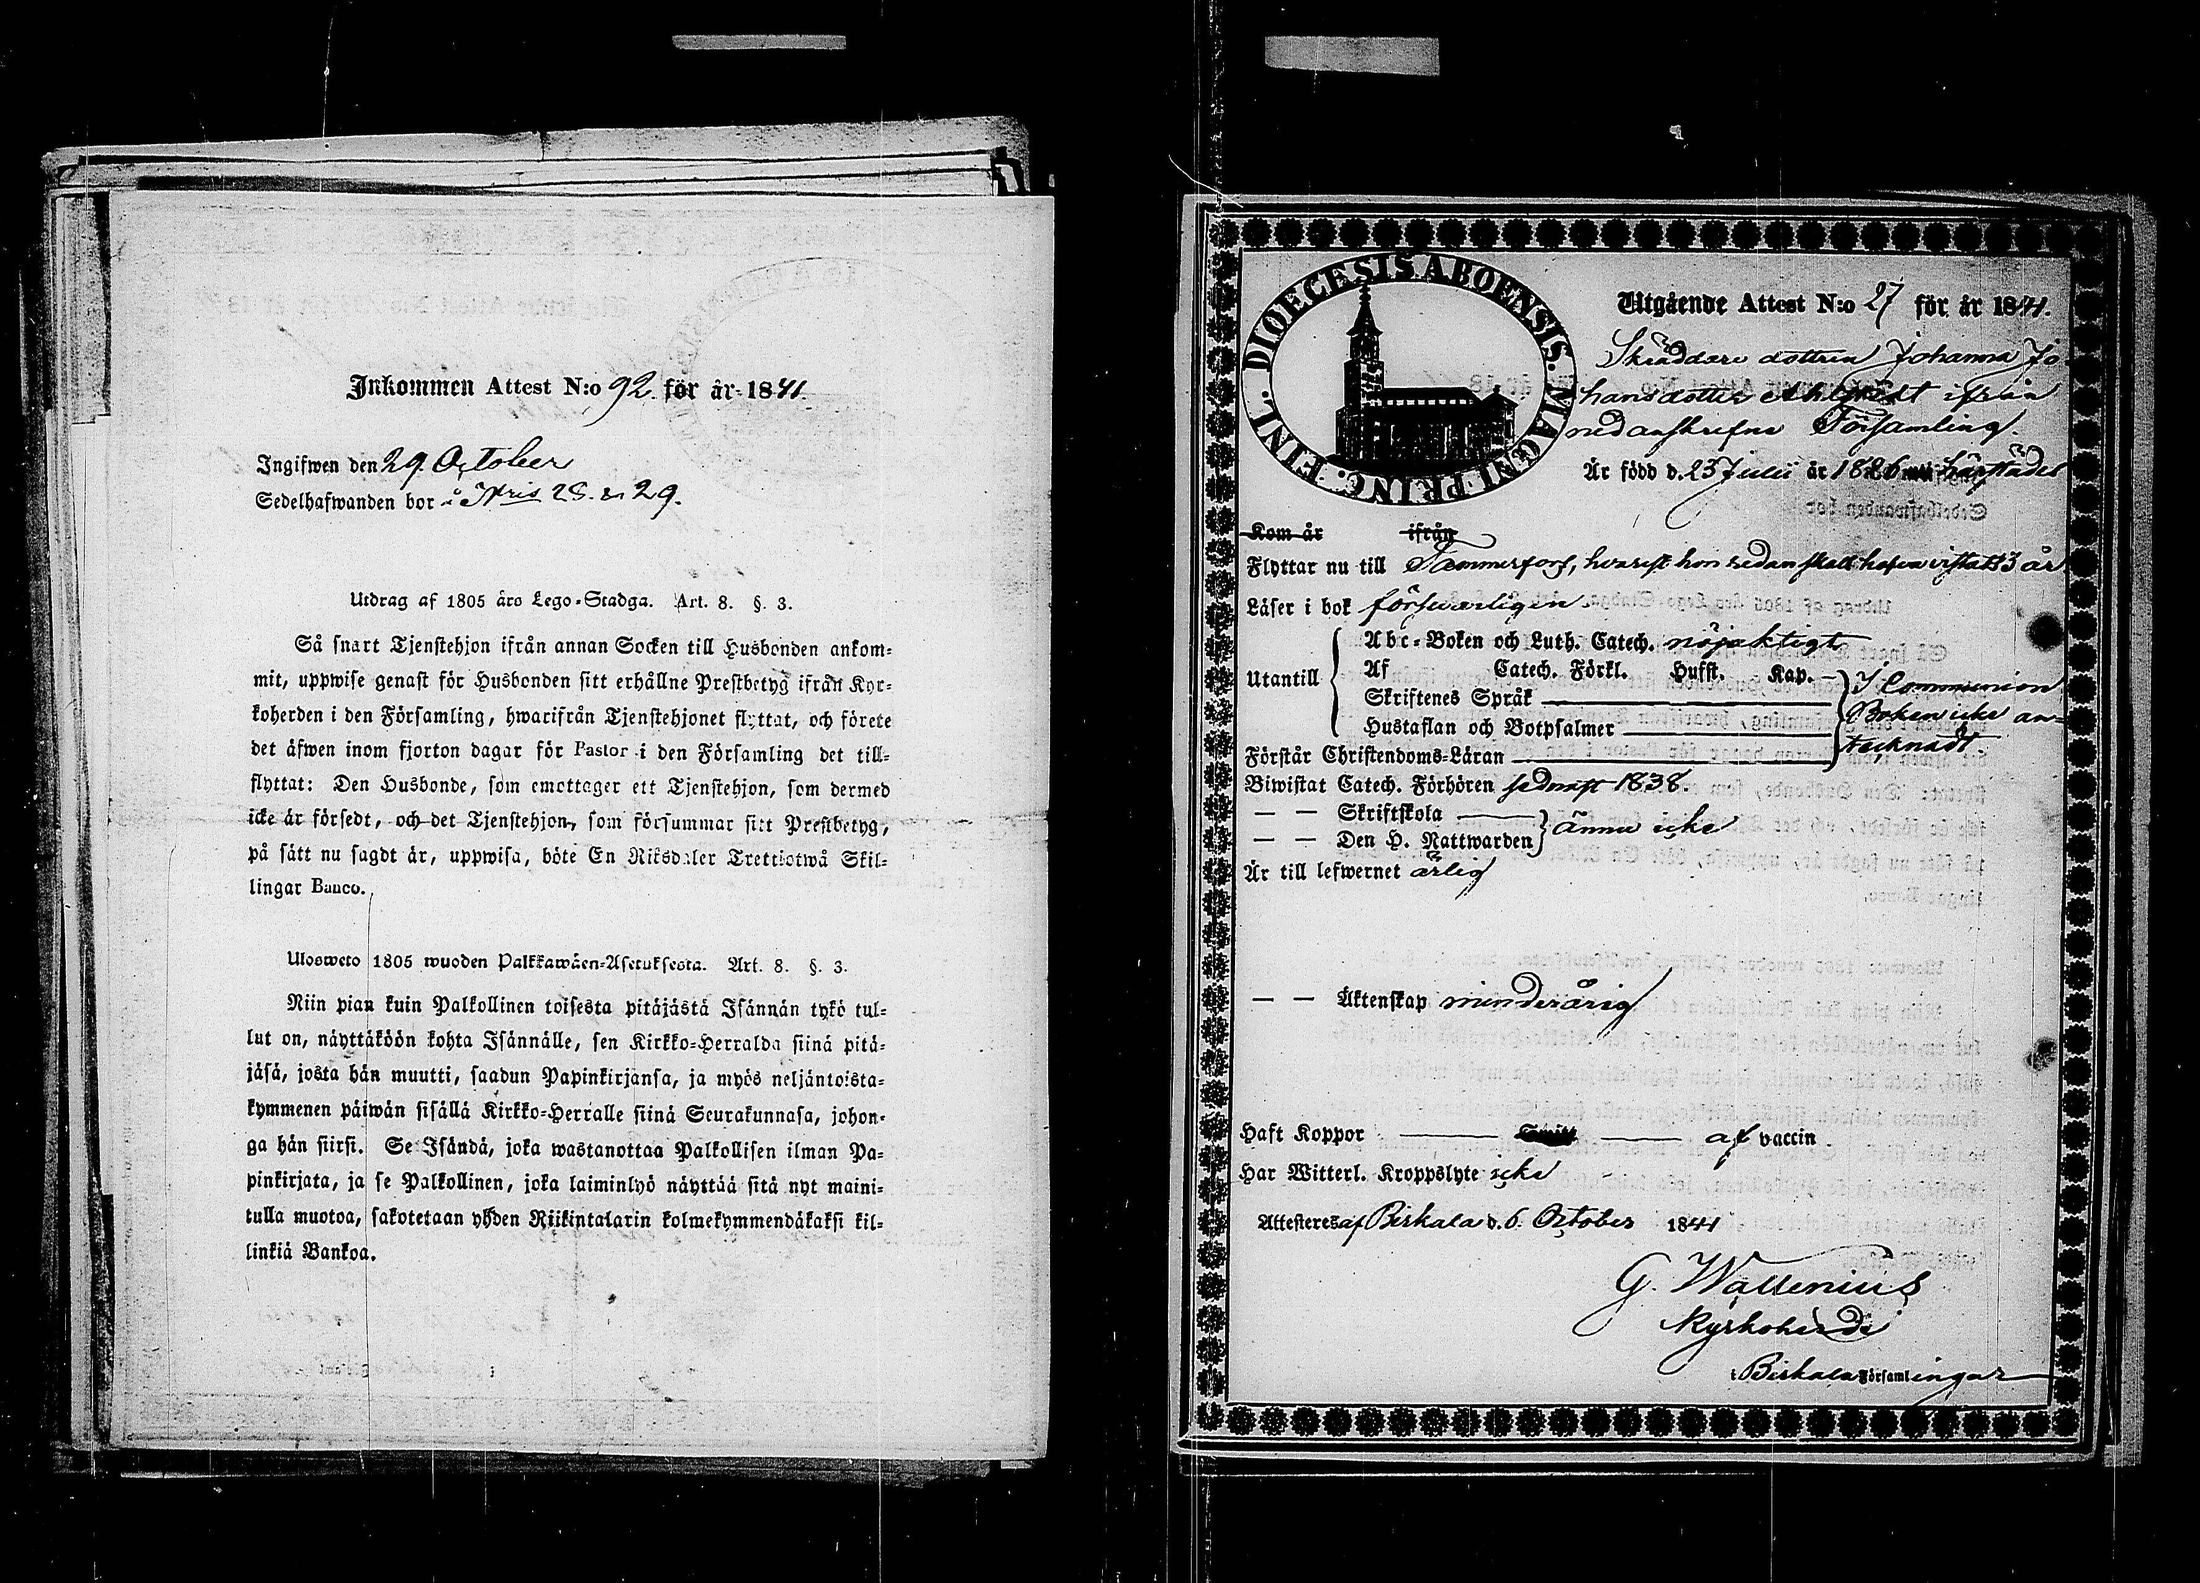 Inkommen Attest N:o 92. för år 1841.
Ingifwen den 29. October
Sedelhafwanden bor å N:ris 28. & 29.
Utdrag af 1805 års Lego-Stadga. Art. 8. §. 3.
Så snart Tjenstehjon ifrån annan Socken till Husbonden ankom-
mit, uppwise genast för Husbonden sitt erhållne Prestbetyg ifrån Kyr-
koherden i den Församling, hwarifrån Tjenstehjonet flyttat, och förete
det äfwen inom fjorton dagar för Pastor i den Församling det till-
flyttat: Den Husbonde, som emottager ett Tjenstehjon, som dermed
icke är försedt, och det Tjenstehjon, som försummar sitt Prestbetyg,
på sätt nu sagdt är, uppwisa, böte En Riksdaler Trettiotwå Skil-
lingar Banco.
Ulosweto 1805 wuoden Palkkawäen-Asetuksesta. Art. 8. §. 3.
Niin pian kuin Palkollinen toisesta pitäjästä Isännän tykö tul-
lut on, näyttäköön kohta Isännälle, sen Kirkko-Herralda siinä pitä-
jäsä, josta hän muutti, saadun Papinkirjansa, ja myös neljäntoista-
kymmenen päiwän sisällä Kirkko-Herralle siinä Seurakunnasa, johon-
ga hän siirsi. Se Isändä, joka wastanottaa Palkollisen ilman Pa-
pinkirjata, ja se Palkollinen, joka laiminlyö näyttää sitä nyt maini-
tulla muotoa, sakotetaan yhden Riikintalarin kolmekymmendäkaksi kil-
linkiä Bankoa.
DIOECESIS ABOENSIS. MAGNI PRINC. FINL.
Utgående Attest N:o 27 för år 1841.
Skräddare dottren Johanna Jo-
hansdotter Ahlstedt ifrån
nedanskrefne Församling.
Är född d. 23 Julii år 1826 härstädes
Kom år ifrån
Flyttar nu till Tammerfors, hvarest hon redan skall hafva vistats 3 år
Läser i bok försvarligen
Utantill
Abc-Boken och Luth. Catech. nöjaktigt
Af Catech. Förkl. Hufst. Kap.
Skriftenes Språk
Hustaflan och Botpsalmer
Förstår Christendoms-Läran
I Communion
Boken icke an-
tecknadt.
Biwistat Catech. Förhören sednast 1838.
— — Skriftskola
— — Den H. Nattwarden
ännu icke
Är till lefwernet ärlig
— — Äktenskap minderårig
Haft Koppor af vaccin
Har Witterl. Kroppslyte icke
Attesteres af Birkala d. 6. October 1841
G. Wallenius
Kyrkoherde
i Birkala Församlingar